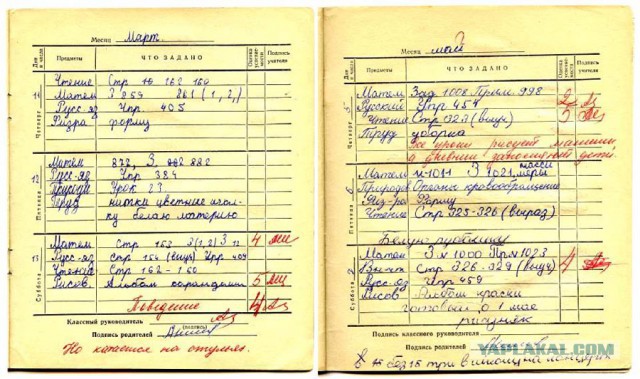 Месяц Март
Дни и числа Предметы ЧТО ЗАДАНО Оценка успеваемости Подпись учителя
Четверг 11
Чтение Стр 162 160
Матем З 259 261 (1, 2,)
Русс-яз Упр. 405
Физра форму
Пятница 12
Матем З 882
Русс-яз Упр 384
Природ Урок 23
Труд нитки цветные иголку белую материю
Суббота 13
Матем Стр 153 3(1,2) 3 4
Русс-яз стр 154 (выуч) Упр 404
Чтение Стр 162-160
Рисов. Альбом карандаши 5
Поведение 4
Классный руководитель
(подпись)
Подпись родителей
Но катается на стульях.
Месяц май
Дни и числа Предметы ЧТО ЗАДАНО Оценка успеваемости Подпись учителя
Четверг 5
Матем Зад 1008 Прим 998 2
Русский Упр 454
Чтение Стр 323 (выуч) 5
Труд уборка
Все уроки рисует машины,
а дневник заполняют дети.
Пятница 6
Матем 1021 меры массы
Природ Органы кровообращения
Физ-ра Форму
Чтение Стр 325-326 (выраз)
Белую рубашку
Суббота
Матем З 1000 Прим 1023 4
Стр 326-329 (выуч)
Русс-яз Упр 459
Рисов Альбом краски
готовый о 1 мае
рисунок
Подпись классного руководителя
Подпись родителей
YAPLAKAL.COM